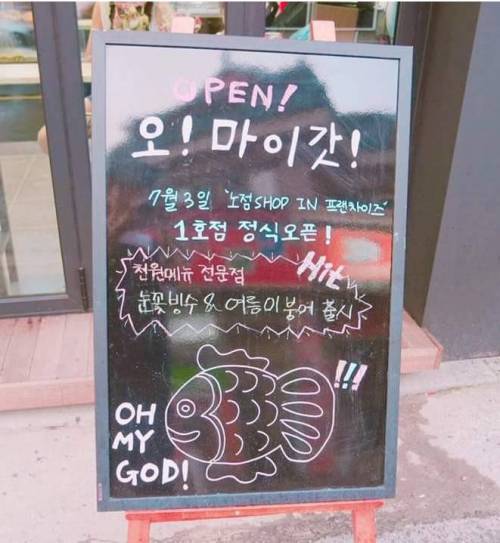 OPEN!
오! 마이갓!
7월 3일 "노점SHOP IN 프랜차이즈"
1호점 정식오픈!
천원메뉴 전문점 Hit
눈꽃빙수 & 여름이붕어 출시
!!!
OH
MY
GOD!